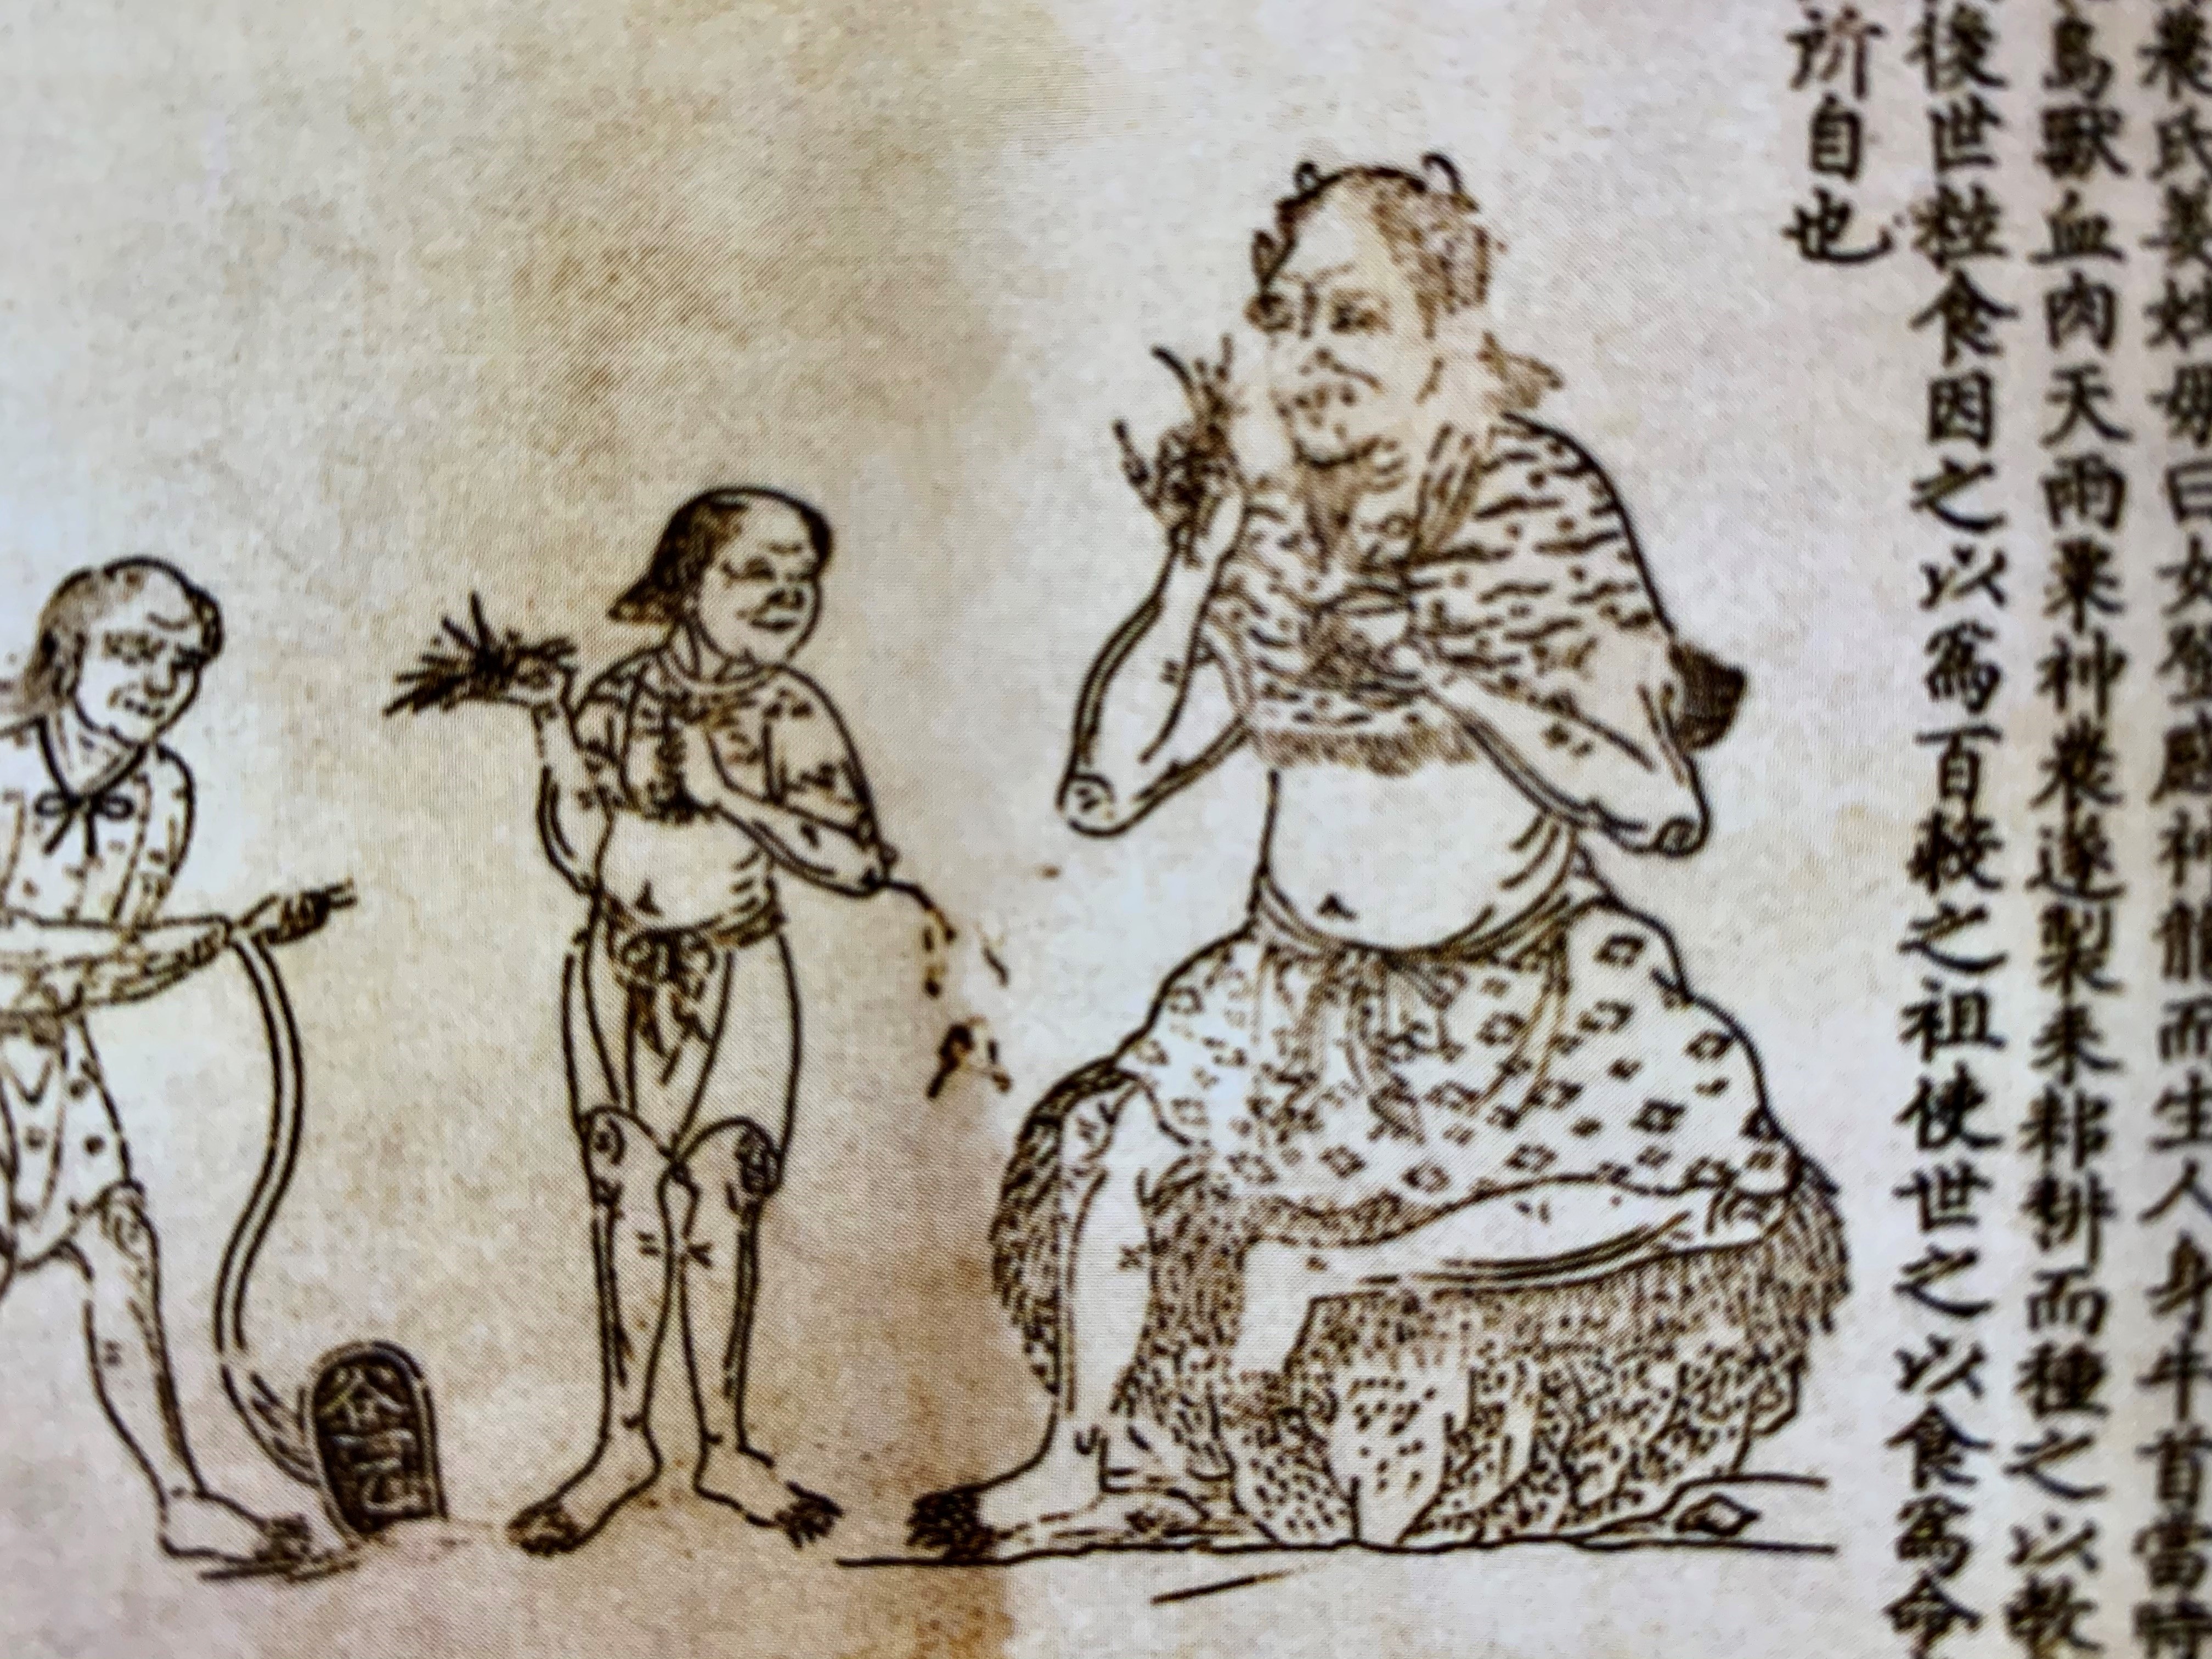 農氏姜姓母曰女登感神龍而生人身牛首當時
鳥獸血肉天雨粟神農遂製耒耜耕而種之以教
後世粒食因之以為百穀之祖使世之以食為命
所自也